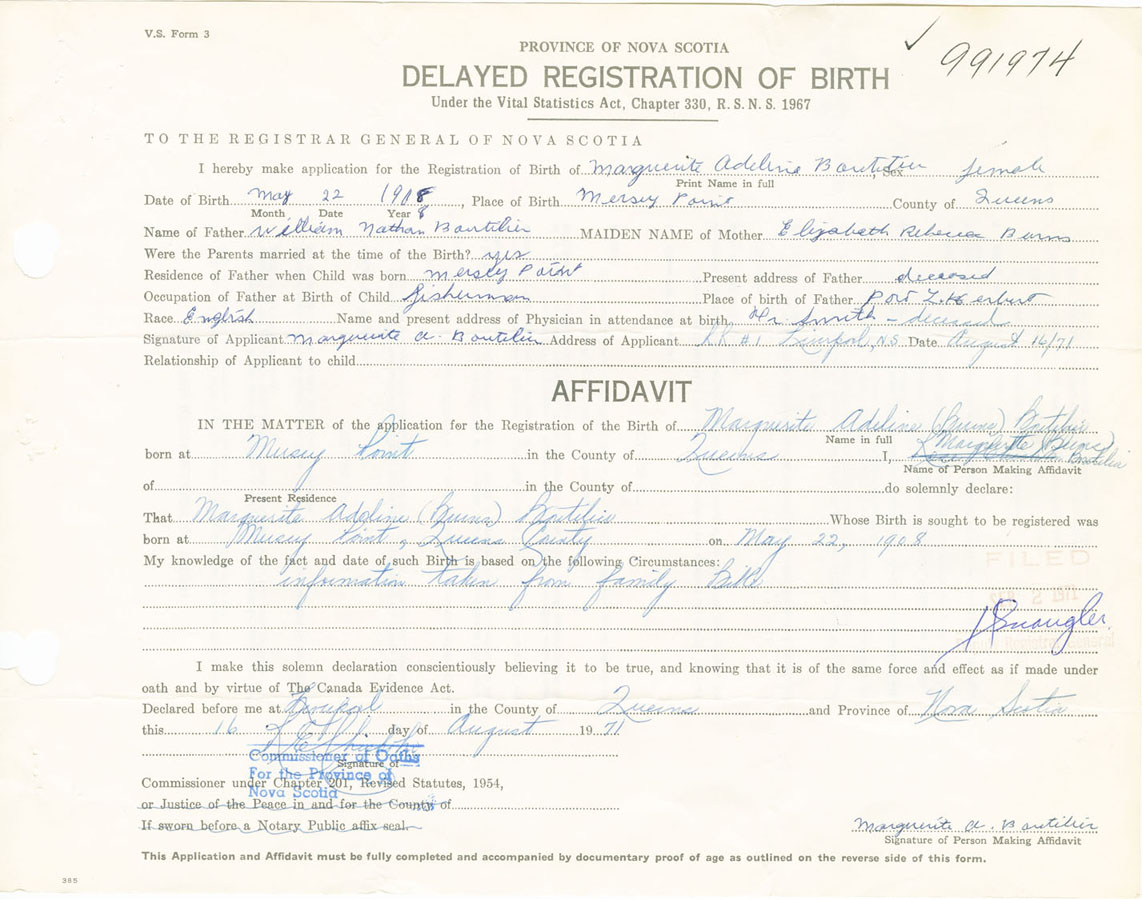 V.S. Form 3
991974
PROVINCE OF NOVA SCOTIA
DELAYED REGISTRATION OF BIRTH
Under the Vital Statistics Act, Chapter 330, R. S. N. S. 1967
TO THE REGISTRAR GENERAL OF NOVA SCOTIA
I hereby make application for the Registration of Birth of Marguerite Adeline Boutilier, Sex female
Print Name in full
Date of Birth May 22 1908, Place of Birth Mersey Point County of Queens
Month Date Year 8
Name of Father William Nathan Boutilier MAIDEN NAME of Mother Elizabeth Rebecca Burns
Were the Parents married at the time of the Birth? yes
Residence of Father when Child was born Mersey Point Present address of Father deceased
Occupation of Father at Birth of Child fisherman Place of birth of Father Port L.
Race English Name and present address of Physician in attendance at birth Dr. Smith - deceased
Signature of Applicant Marguerite A. Boutilier Address of Applicant RR #1 Liverpool, N.S. Date August 16/71
Relationship of Applicant to child
AFFIDAVIT
IN THE MATTER of the application for the Registration of the Birth of Marguerite Adeline (Burns) Boutilier
Name in full
born at Mersey Point in the County of Queens I, Marguerite (Burns) Boutilier
Name of Person Making Affidavit
of in the County of do solemnly declare:
Present Residence
That Marguerite Adeline (Burns) Boutilier Whose Birth is sought to be registered was
born at Mersey Point, Queens County on May 22, 1908
My knowledge of the fact and date of such Birth is based on the following Circumstances:
FILED
information taken from family Bible
I make this solemn declaration conscientiously believing it to be true, and knowing that it is of the same force and effect as if made under
oath and by virtue of The Canada Evidence Act.
Declared before me at Liverpool in the County of Queens and Province of Nova Scotia
this 16 day of August 1971
Commissioner of Oaths
Signature of
For the Province of
Commissioner under Chapter 201, Revised Statutes, 1954,
Nova Scotia
or Justice of the Peace in and for the County of
If sworn before a Notary Public affix seal.
Marguerite A. Boutilier
Signature of Person Making Affidavit
This Application and Affidavit must be fully completed and accompanied by documentary proof of age as outlined on the reverse side of this form.
385